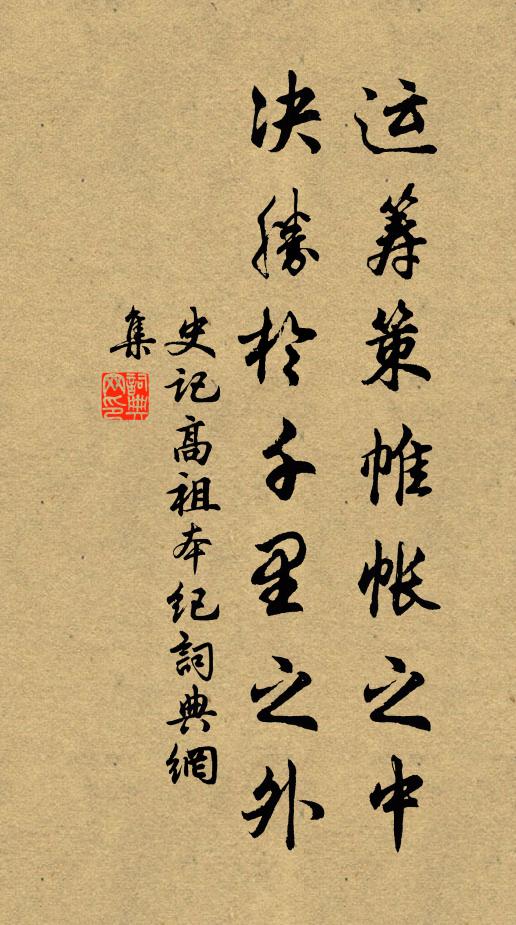 运筹策帷帐之中
决勝於千里之外
史记高祖本纪詞典網
集
詞典網印